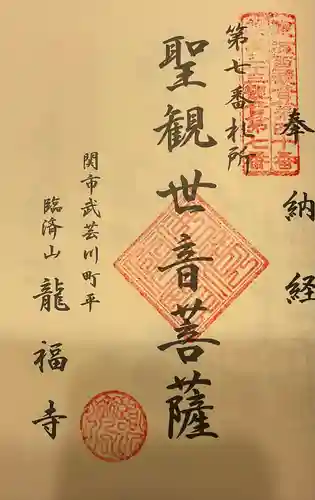 奉納経
第七番札所
聖観世音菩薩
関市武芸川町平
臨済山
龍福寺